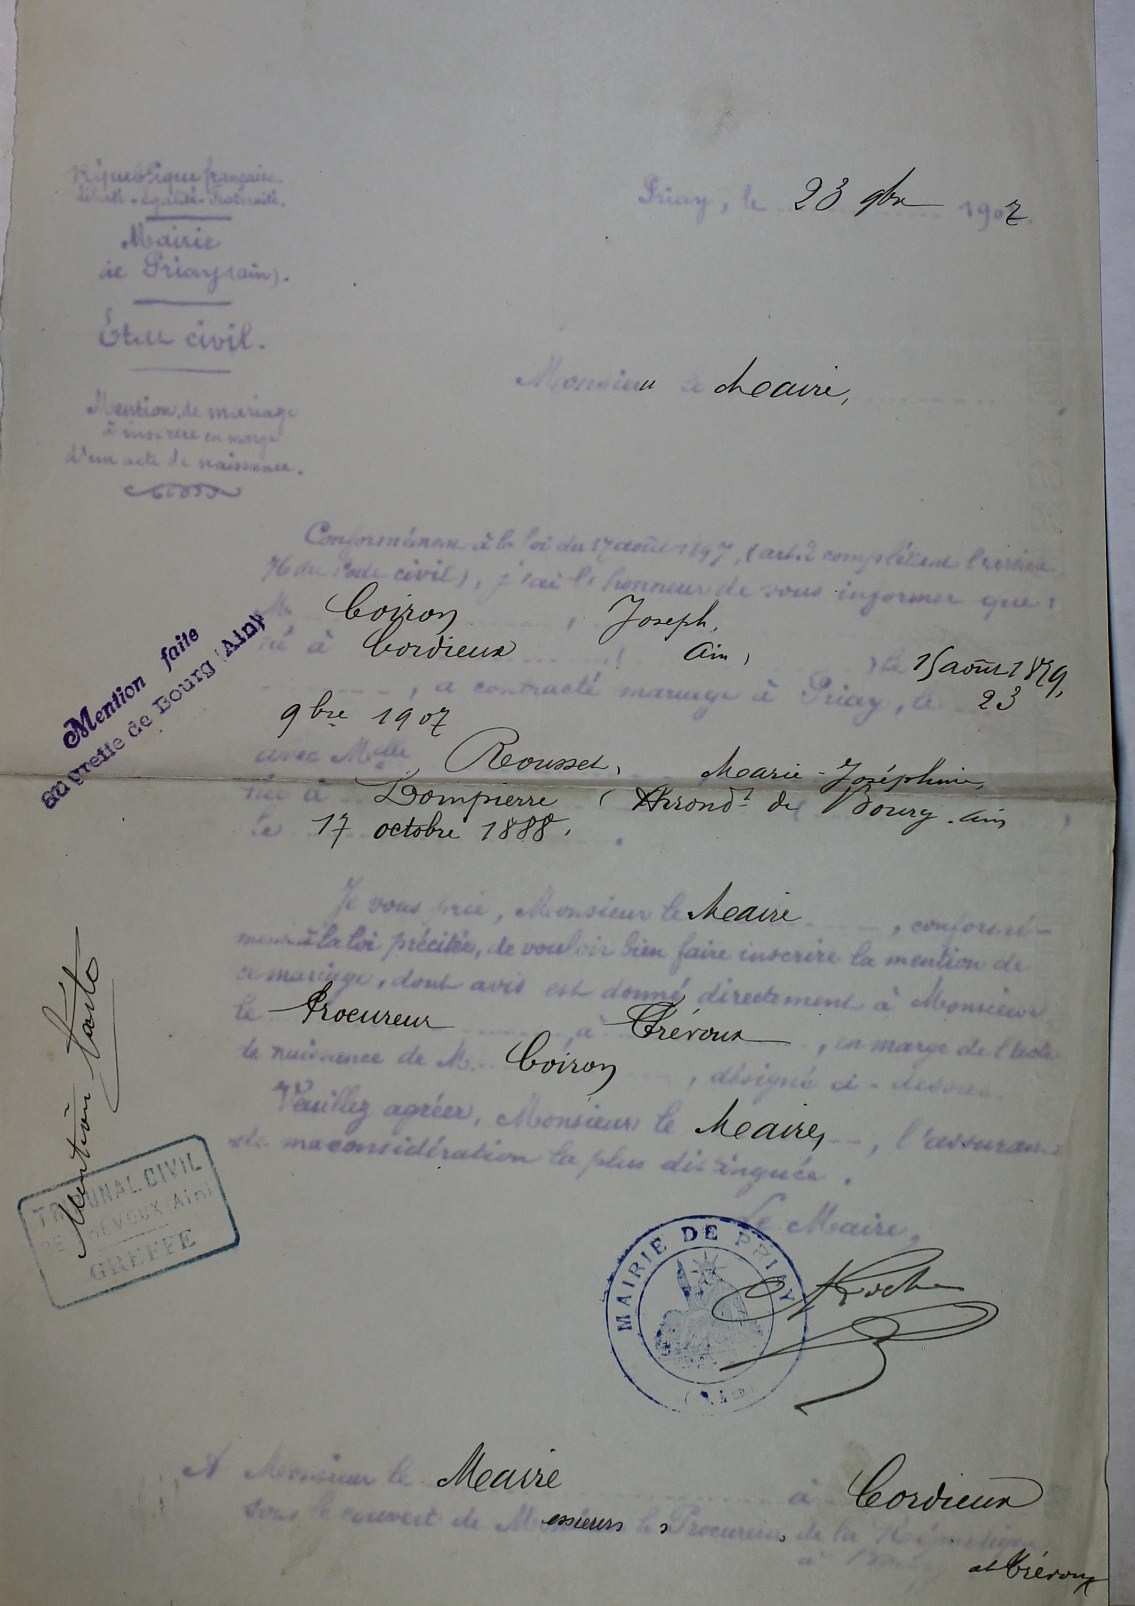 République française
Liberté - Égalité - Fraternité.
Mairie
de Priay (ain).
État civil.
Mention de mariage
à inscrire en marge
d'un acte de naissance.
Priay, le 23 9bre 1907
Monsieur le Maire,
Conformément à la loi du 17 août 1897, (art. 2 complétant l'article
76 du Code civil), j'ai l'honneur de vous informer que :
M. Coiron, Joseph,
né à Cordieux (Ain) le 15 août 1879,
, a contracté mariage à Priay, le 23
9bre 1907
avec Melle Rousset, Marie-Joséphine,
née à Dompierre (Arrondt de Bourg. ain
le 17 octobre 1888.
Je vous prie, Monsieur le Maire, conformé-
ment à la loi précitée, de vouloir bien faire inscrire la mention de
ce mariage, dont avis est donné directement à Monsieur
le Procureur, à Trévoux, en marge de l'acte
de naissance de M. Coiron, désigné ci-dessus.
Veuillez agréer, Monsieur le Maire, l'assurance
de ma considération la plus distinguée.
Le Maire,
MAIRIE DE PRIAY
(Ain)
A Monsieur le Maire à Cordieux
sous le couvert de Messieurs les Procureurs de la République
à Bourg et Trévoux
Mention faite
au greffe de Bourg (Ain)
Mention faite
TRIBUNAL CIVIL
DE TREVOUX (Ain)
GREFFE